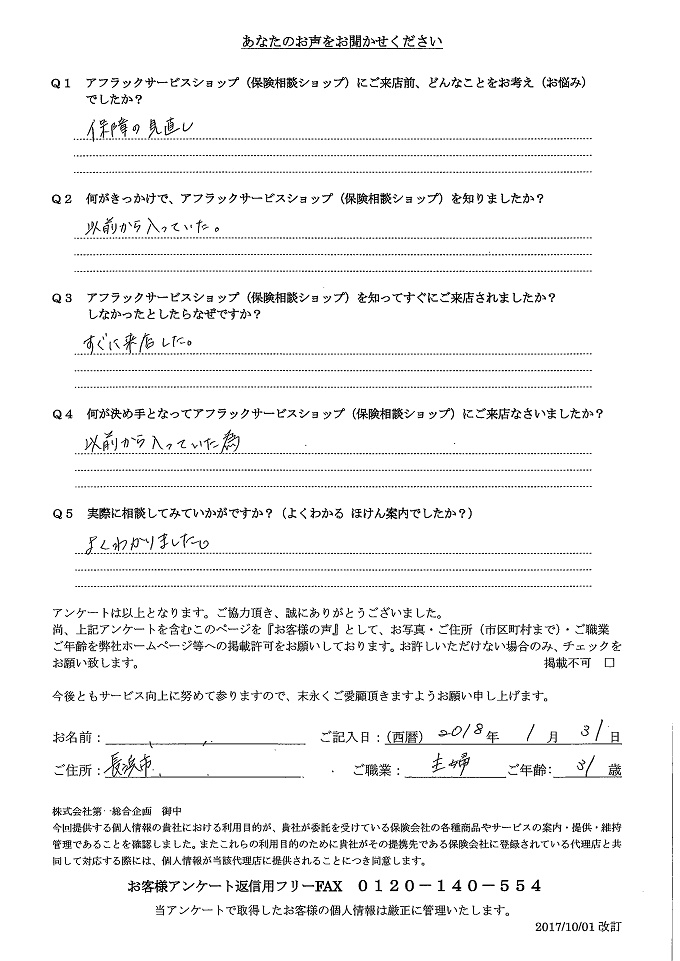 あなたのお声をお聞かせください
Q1　アフラックサービスショップ（保険相談ショップ）にご来店前、どんなことをお考え（お悩み）
でしたか？
保障の見直し
Q2　何がきっかけで、アフラックサービスショップ（保険相談ショップ）を知りましたか？
以前から入っていた。
Q3　アフラックサービスショップ（保険相談ショップ）を知ってすぐにご来店されましたか？
しなかったとしたらなぜですか？
すぐに来店した。
Q4　何が決め手となってアフラックサービスショップ（保険相談ショップ）にご来店なさいましたか？
以前から入っていた為
Q5　実際に相談してみていかがですか？（よくわかる ほけん案内でしたか？）
よくわかりました。
アンケートは以上となります。ご協力頂き、誠にありがとうございました。
尚、上記アンケートを含むこのページを『お客様の声』として、お写真・ご住所（市区町村まで）・ご職業
ご年齢を弊社ホームページ等への掲載許可をお願いしております。お許しいただけない場合のみ、チェックを
お願い致します。　掲載不可　□
今後ともサービス向上に努めて参りますので、末永くご愛顧頂きますようお願い申し上げます。
お名前：　ご記入日：（西暦）2018年　1月　31日
ご住所：長浜市　ご職業：主婦　ご年齢：31歳
株式会社第一総合企画　御中
今回提供する個人情報の貴社における利用目的が、貴社が委託を受けている保険会社の各種商品やサービスの案内・提供・維持
管理であることを確認しました。またこれらの利用目的のために貴社がその提携先である保険会社に登録されている代理店と共
同して対応する際には、個人情報が当該代理店に提供されることにつき同意します。
お客様アンケート返信用フリーFAX　０１２０－１４０－５５４
当アンケートで取得したお客様の個人情報は厳正に管理いたします。
2017/10/01 改訂